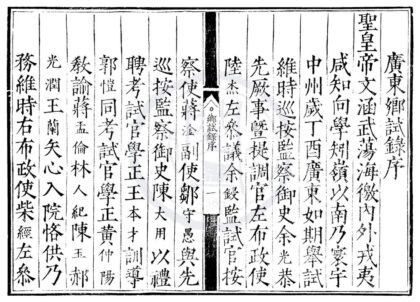 廣東鄉試錄序
聖皇帝文涵武蕩海徼内外戎夷
咸知向學矧嶺以南乃寰宇
中州歲丁酉廣東如期舉試
維時巡按監察御史余光恭
先厥事曁提調官左布政使
陸杰左叅議余監試官按
鄉試錄序
一
察使蔣淦副使鄒守愚與先
巡按監察御史陳大用以禮
聘考試官學正王本才訓導
郭愷同考試官學正黄仲陽
敎諭蔣孟倫林人紀陳玉郝
光潤王蘭矢心入院恪供乃
務維時右布政使柴經左叅